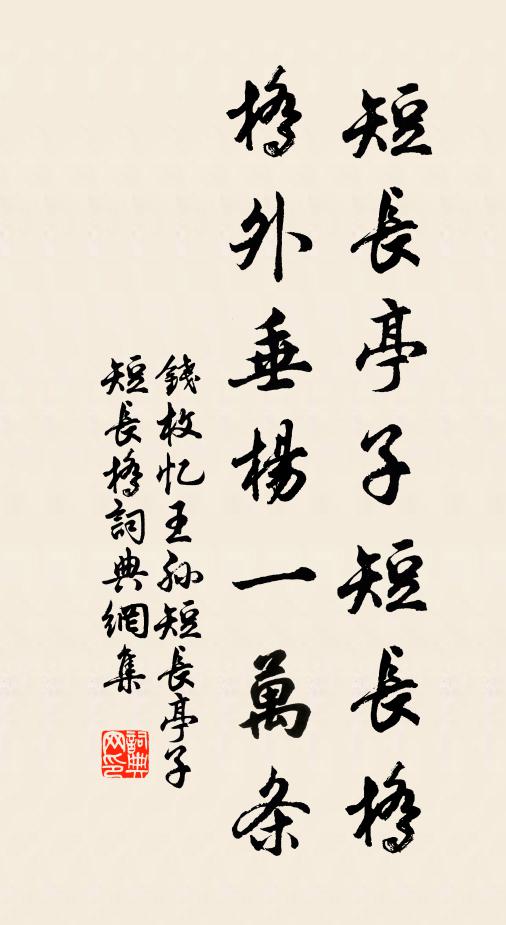 短長亭子短長橋
橋外垂楊一萬条
錢枚忆王孙短長亭子
短長橋詞典網集
詞典网印